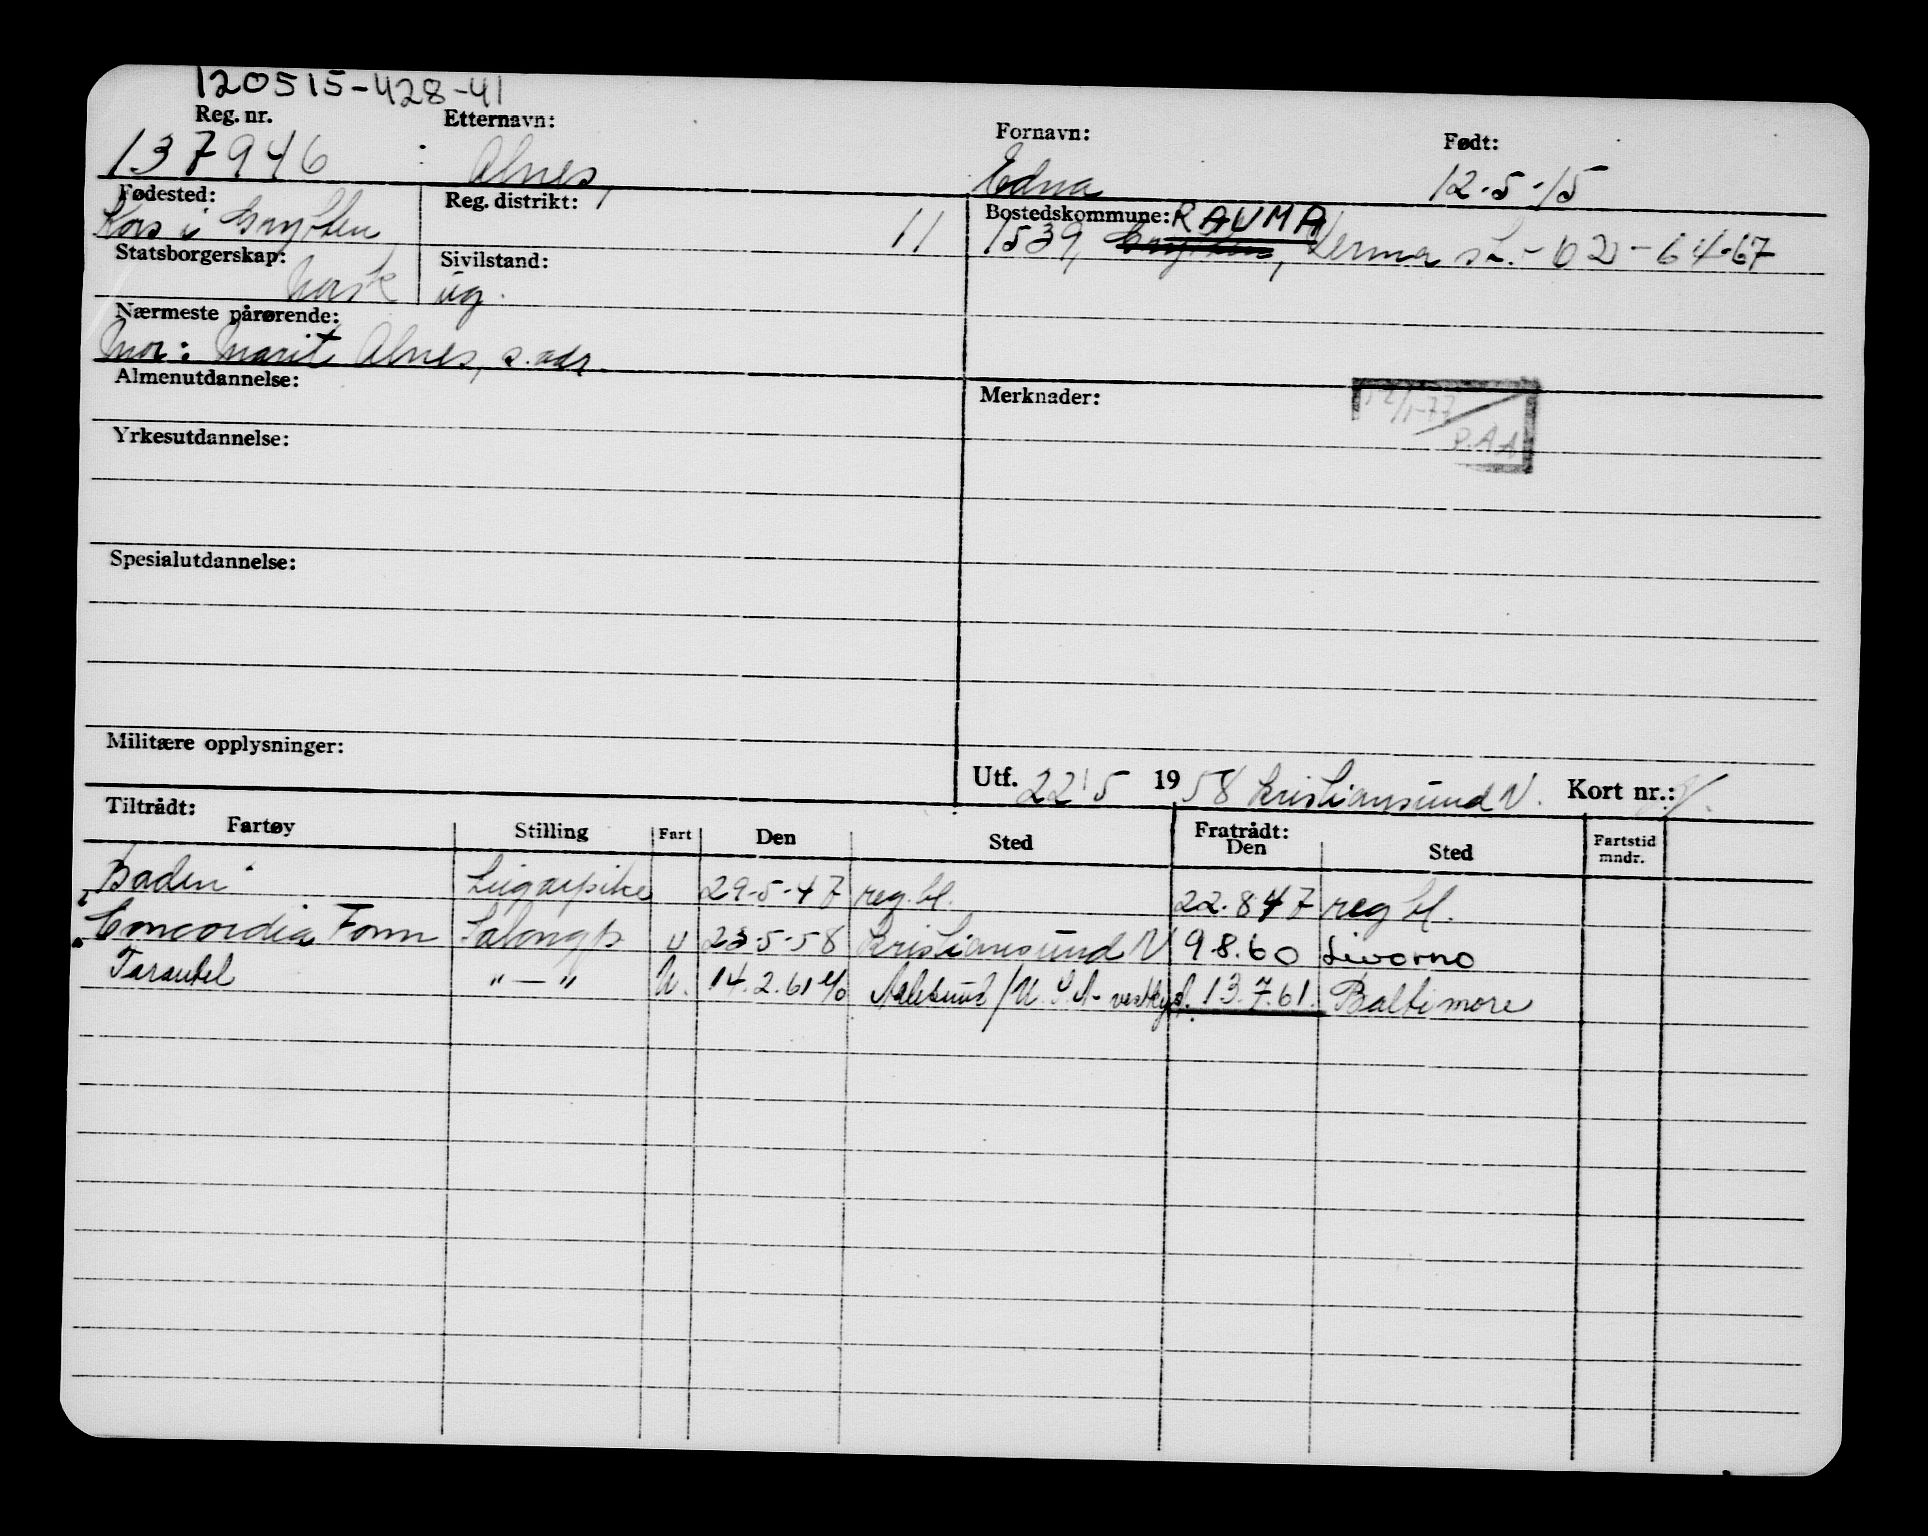 120515-428-41
Reg. nr. Etternavn: Fornavn: Født:
137946 Alnes, Edna 12-5-15
Fødested: Reg. distrikt: Bostedskommune: RAUMA
Kors i Grytten 11 1539, Grytten, Verma st. - 6 4-67
Statsborgerskap: Sivilstand:
Norsk ug.
Nærmeste pårørende:
Mor: Marit Alnes, s. adr.
Almenutdannelse: Merknader:
12/1-77
P.A.A
Yrkesutdannelse:
Spesialutdannelse:
Militære opplysninger:
Utf. 22/5 1958 Kristiansund N. Kort nr.:
Tiltrådt: Fratrådt:
Fartøy Stilling Fart Den Sted Den Sted Fartstid mndr.
Baden Lugarpike 29-5-47 reg. bl. 22.8.47 reg bl.
Concordia Fonn Salongp u 23-5-58 Kristiansund N 9.8.60 Livorno
Tarantel "—" U. 14.2.61 Aalesund/U.S.A- vestkyst. 13.7.61. Baltimore